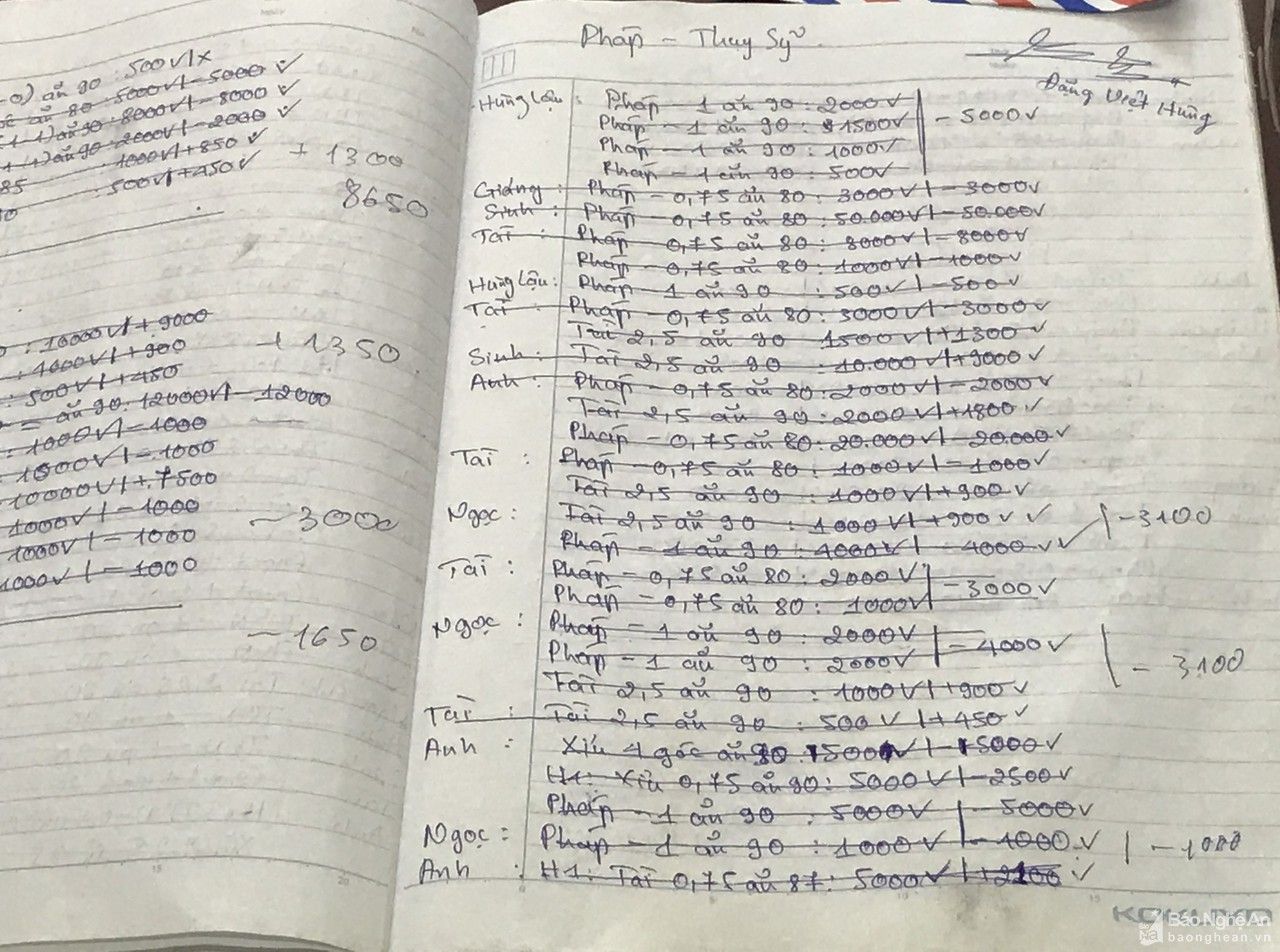 -0) ăn 90: 500v/x
ăn 80: 5000v/-5000 v
+1) ăn 90: 8000v/-8000 v
ăn 90: 2000v/-2000 v
85 1000v/+850 v
500v/+450 v
+ 1300
8650
: 10000v/+9000
: 1000v/+900
+ 1350
: 500v/+450
= ăn 90: 12000v/-12000
: 1000v/-1000
1000v/-1000
10000v/+7500
1000v/-1000
- 3000
1000v/-1000
1000v/-1000
- 1650
Pháp - Thuỵ Sỹ
Đặng Việt Hùng
Hùng Lậu: Pháp - 1 ăn 90: 2000v
Pháp - 1 ăn 90: 1500v | - 5000v
Pháp - 1 ăn 90: 1000v
Pháp - 1 ăn 90: 500v
Giáng: Pháp - 0,75 ăn 80: 3000v/-3000v
Sinh: Pháp - 0,75 ăn 80: 50.000v/-50.000v
Tài: Pháp - 0,75 ăn 80: 8000v/-8000v
Pháp - 0,75 ăn 80: 1000v/-1000v
Hùng Lậu: Pháp - 1 ăn 90: 500v/-500v
Tài: Pháp - 0,75 ăn 80: 3000v/-3000v
Tài 2,5 ăn 90 1500v/+1300v
Sinh: Tài 2,5 ăn 90: 10.000v/+9000v
Anh: Pháp - 0,75 ăn 80: 2000v/-2000v
Tài 2,5 ăn 90: 2000v/+1800v
Pháp - 0,75 ăn 80: 20.000v/-20.000v
Tài: Pháp - 0,75 ăn 80: 1000v/-1000v
Tài 2,5 ăn 90: 1000v/+900v
Ngọc: Tài 2,5 ăn 90: 1000v/+900v v | -3100
Pháp - 1 ăn 90: 4000v/-4000v v
Tài: Pháp - 0,75 ăn 80: 2000v
Pháp - 0,75 ăn 80: 1000v | -3000v
Ngọc: Pháp - 1 ăn 90: 2000v | -4000v
Pháp - 1 ăn 90: 2000v
| - 3100
Tài 2,5 ăn 90: 1000v/+900v
Tài: Tài 2,5 ăn 90: 500v/+450v
Anh: Xỉu 4 góc ăn 80 15000v/-15000v
H1: Xỉu 0,75 ăn 90: 5000v/-2500v
Pháp - 1 ăn 90: 5000v/-5000v
Ngọc: Pháp - 1 ăn 90: 1000v/-1000v | -1000
Anh: H1: Tài 0,75 ăn 87: 5000v/+2100v
KOKUYO
Báo Nghệ An
baonghean.vn